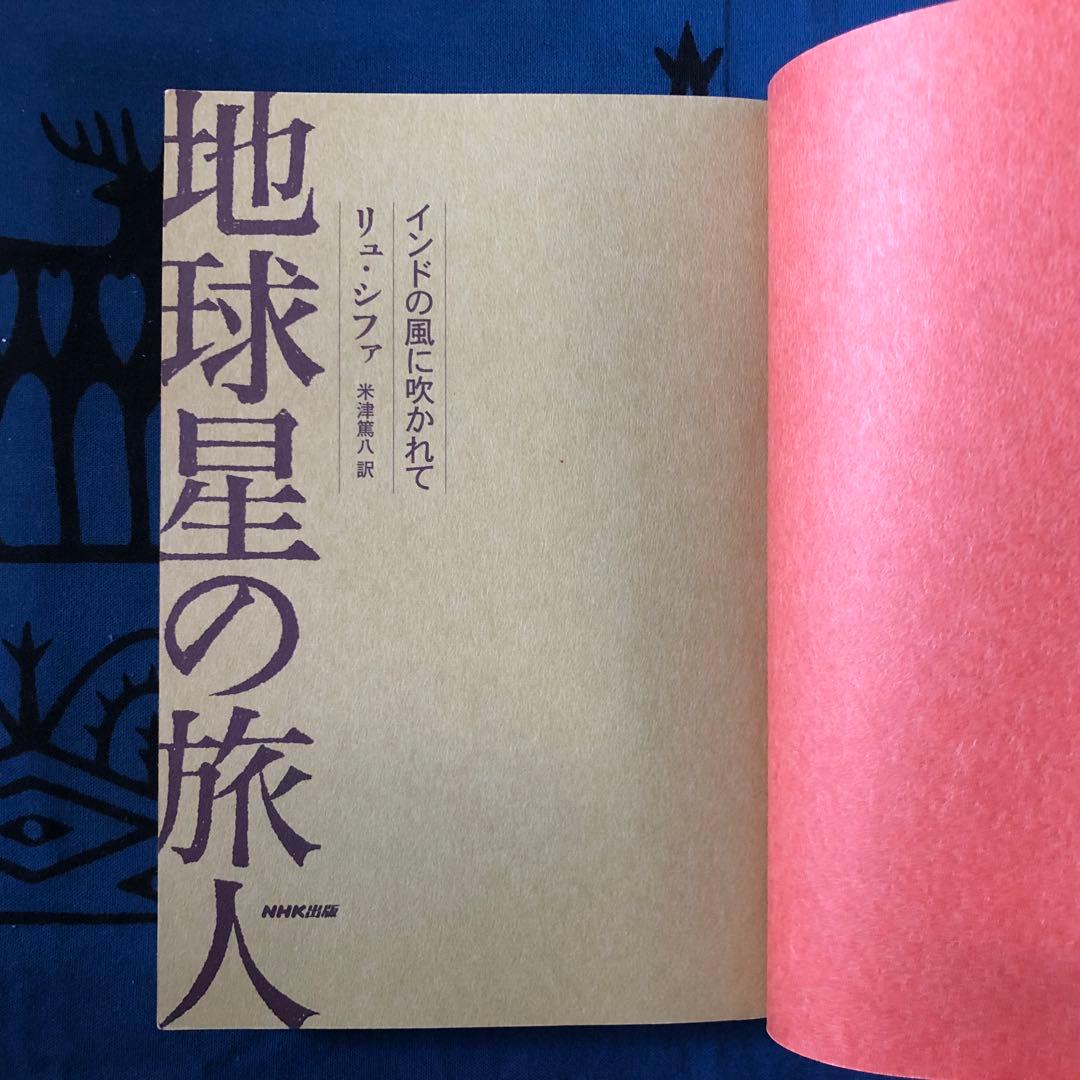 インドの風に吹かれて
リュ・シファ 米津篤八 訳
地球星の旅人
NHK出版